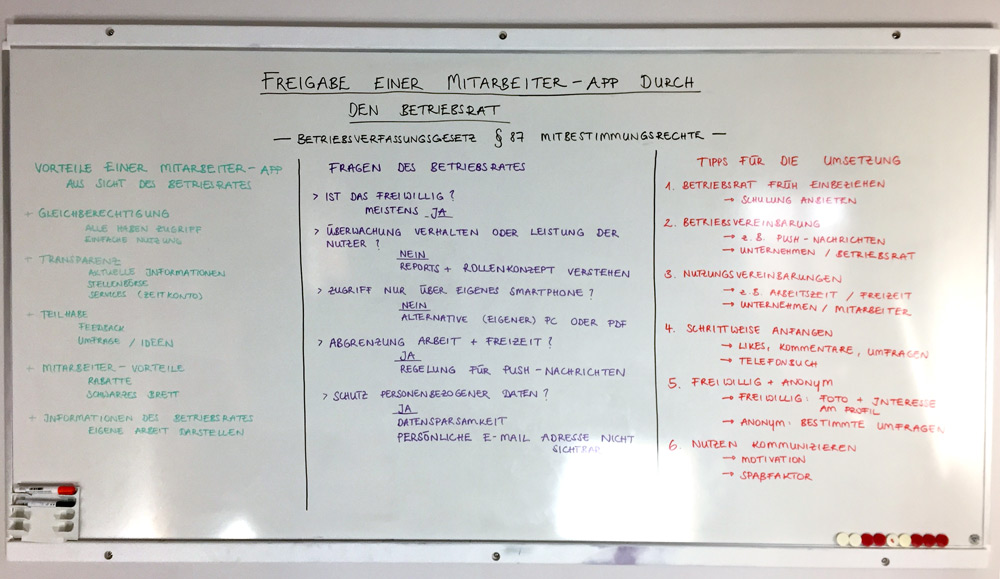 FREIGABE EINER MITARBEITER-APP DURCH
DEN BETRIEBSRAT
— BETRIEBSVERFASSUNGSGESETZ § 87 MITBESTIMMUNGSRECHTE —
VORTEILE EINER MITARBEITER-APP
AUS SICHT DES BETRIESRATES
+ GLEICHBERECHTIGUNG
ALLE HABEN ZUGRIFF
EINFACHE NUTZUNG
+ TRANSPARENZ
AKTUELLE INFORMATIONEN
STELLENBÖRSE
SERVICES (ZEITKONTO)
+ TEILHABE
FEEDBACK
UMFRAGE / IDEEN
+ MITARBEITER-VORTEILE
RABATTE
SCHWARZES BRETT
+ INFORMATIONEN DES BETRIEBSRATES
EIGENE ARBEIT DARSTELLEN
FRAGEN DES BETRIEBSRATES
> IST DAS FREIWILLIG?
MEISTENS JA
> ÜBERWACHUNG VERHALTEN ODER LEISTUNG DER
NUTZER?
NEIN
REPORTS + ROLLENKONZEPT VERSTEHEN
> ZUGRIFF NUR ÜBER EIGENES SMARTPHONE?
NEIN
ALTERNATIVE (EIGENER) PC ODER PDF
> ABGRENZUNG ARBEIT + FREIZEIT?
JA
REGELUNG FÜR PUSH-NACHRICHTEN
> SCHUTZ PERSONENBEZOGENER DATEN?
JA
DATENSPARSAMKEIT
PERSÖNLICHE E-MAIL ADRESSE NICHT
SICHTBAR
TIPPS FÜR DIE UMSETZUNG
1. BETRIEBSRAT FRÜH EINBEZIEHEN
→ SCHULUNG ANBIETEN
2. BETRIEBSVEREINBARUNG
→ Z.B. PUSH-NACHRICHTEN
→ UNTERNEHMEN / BETRIEBSRAT
3. NUTZUNGSVEREINBARUNGEN
→ Z.B. ARBEITSZEIT / FREIZEIT
→ UNTERNEHMEN / MITARBEITER
4. SCHRITTWEISE ANFANGEN
→ LIKES, KOMMENTARE, UMFRAGEN
→ TELEFONBUCH
5. FREIWILLIG + ANONYM
→ FREIWILLIG: FOTO + INTERESSE
AM PROFIL
→ ANONYM: BESTIMMTE UMFRAGEN
6. NUTZEN KOMMUNIZIEREN
→ MOTIVATION
→ SPAßFAKTOR